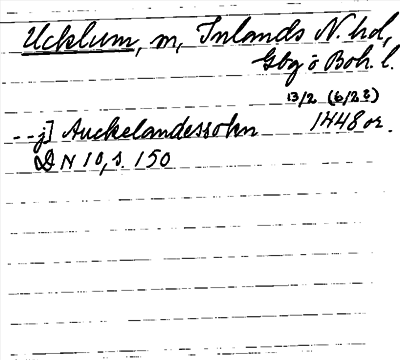 Ucklum, m, Inlands N. hd,
Gbg o Boh. l.
13/2 (6/2 ?)
--j] Auckelandessohn 1448 or.
DN 10, s. 150